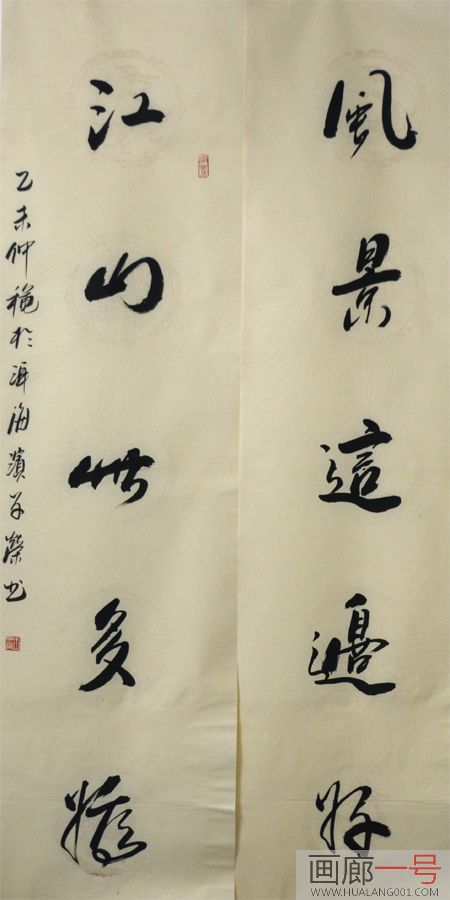 風景這邊好
江山此多嬌
乙未仲穐於洱海濱子榮书
画廊一号
WWW.HUALANG001.COM